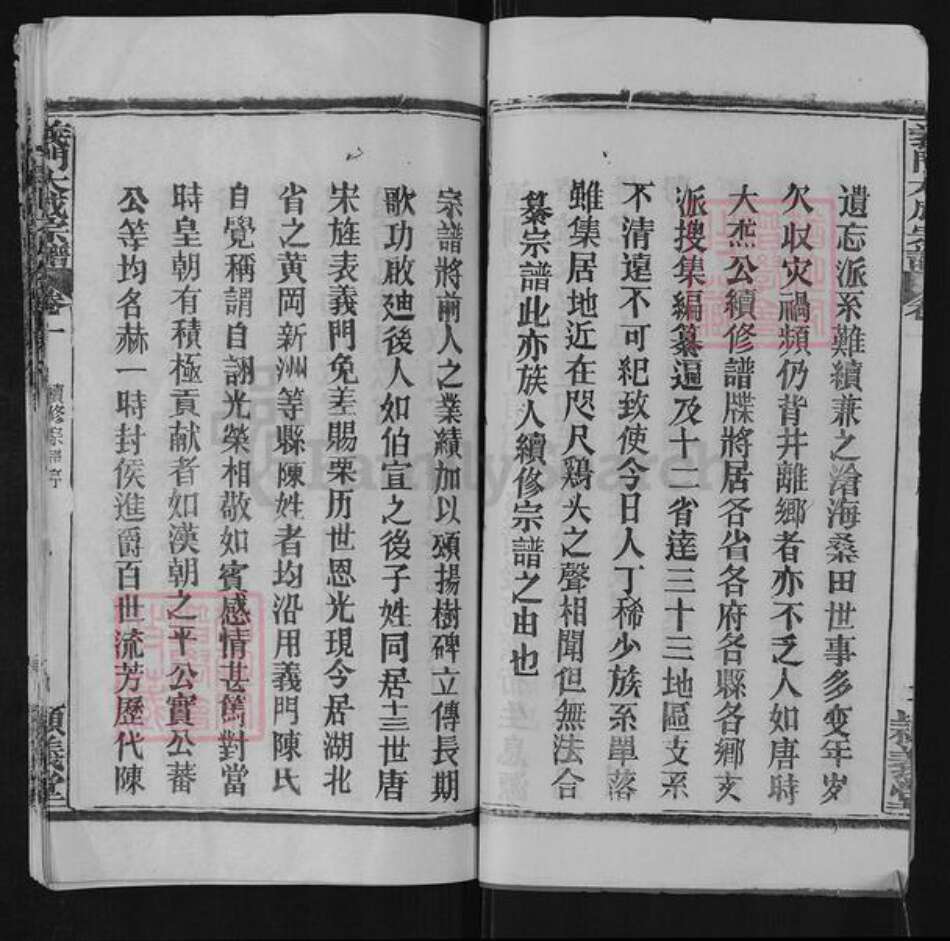 遺忘派系難續兼之滄海桑田世事多变年岁
欠収灾禍頻仍背井離鄉者亦不乏人如唐時
大杰公續修譜牒將居各省各府各縣各鄉支
派搜集編纂遍及十二省達三十三地區支系
不清遠不可紀致使今日人丁稀少族系單落
雖集居地近在咫尺鷄犬之聲相聞但無法合
纂宗譜此亦族人續修宗譜之由也
宗譜將前人之業績加以頌揚樹碑立傳長期
歌功啟廸後人如伯宣之後子姓同居十三世唐
宋旌表義門免差賜粟历世恩光現今居湖北
省之黄岡新洲等縣陳姓者均沿用義門陳氏
自覺稱謂自詡光榮相敬如賓感情甚篤對當
時皇朝有積極貢献者如漢朝之平公實公蕃
公等均名赫一時封侯進爵百世流芳歷代陳
義門大成宗譜
卷一
續修宗譜序
類義堂
FamilySearch